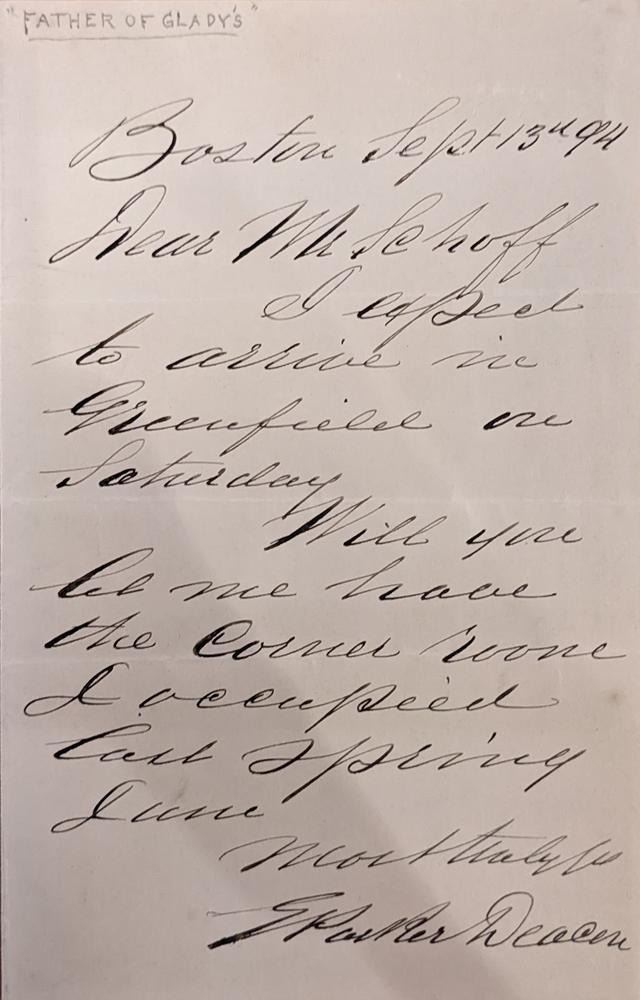 "FATHER OF GLADY'S"
Boston Sept 13th 94
Dear Mr Schoff
I expect
to arrive in
Greenfield on
Saturday
Will you
let me have
the corner room
I occupied
last spring
I am
most truly yrs
E Parker Deacon